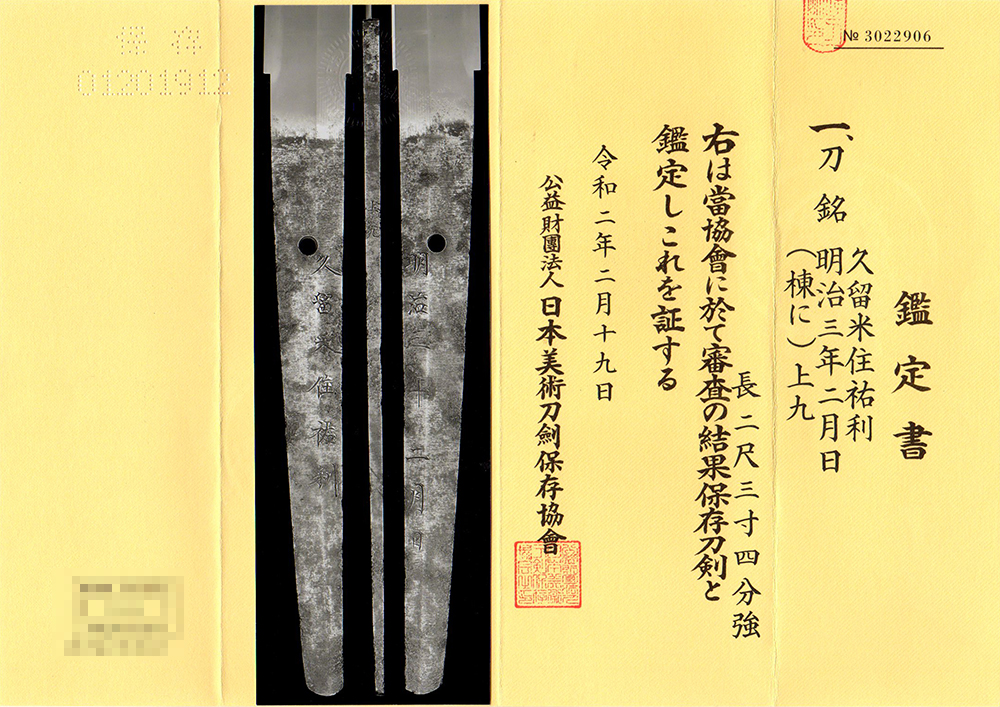 № 3022906
鑑定書
一、刀 銘 久留米住祐利
明治三年二月日
(棟に)上九
長二尺三寸四分強
右は當協會に於て審査の結果保存刀剣と
鑑定しこれを証する
令和二年二月十九日
公益財團法人 日本美術刀劍保存協會
明治三年二月日
久留米住祐利
保存
01201912